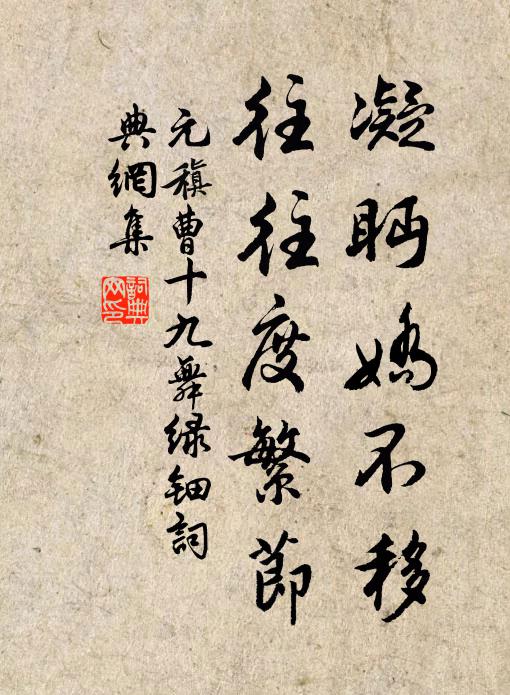 凝眄嬌不移
往往度繁節
元稹曹十九舞緑鈿詞
典網集
詞典
网印